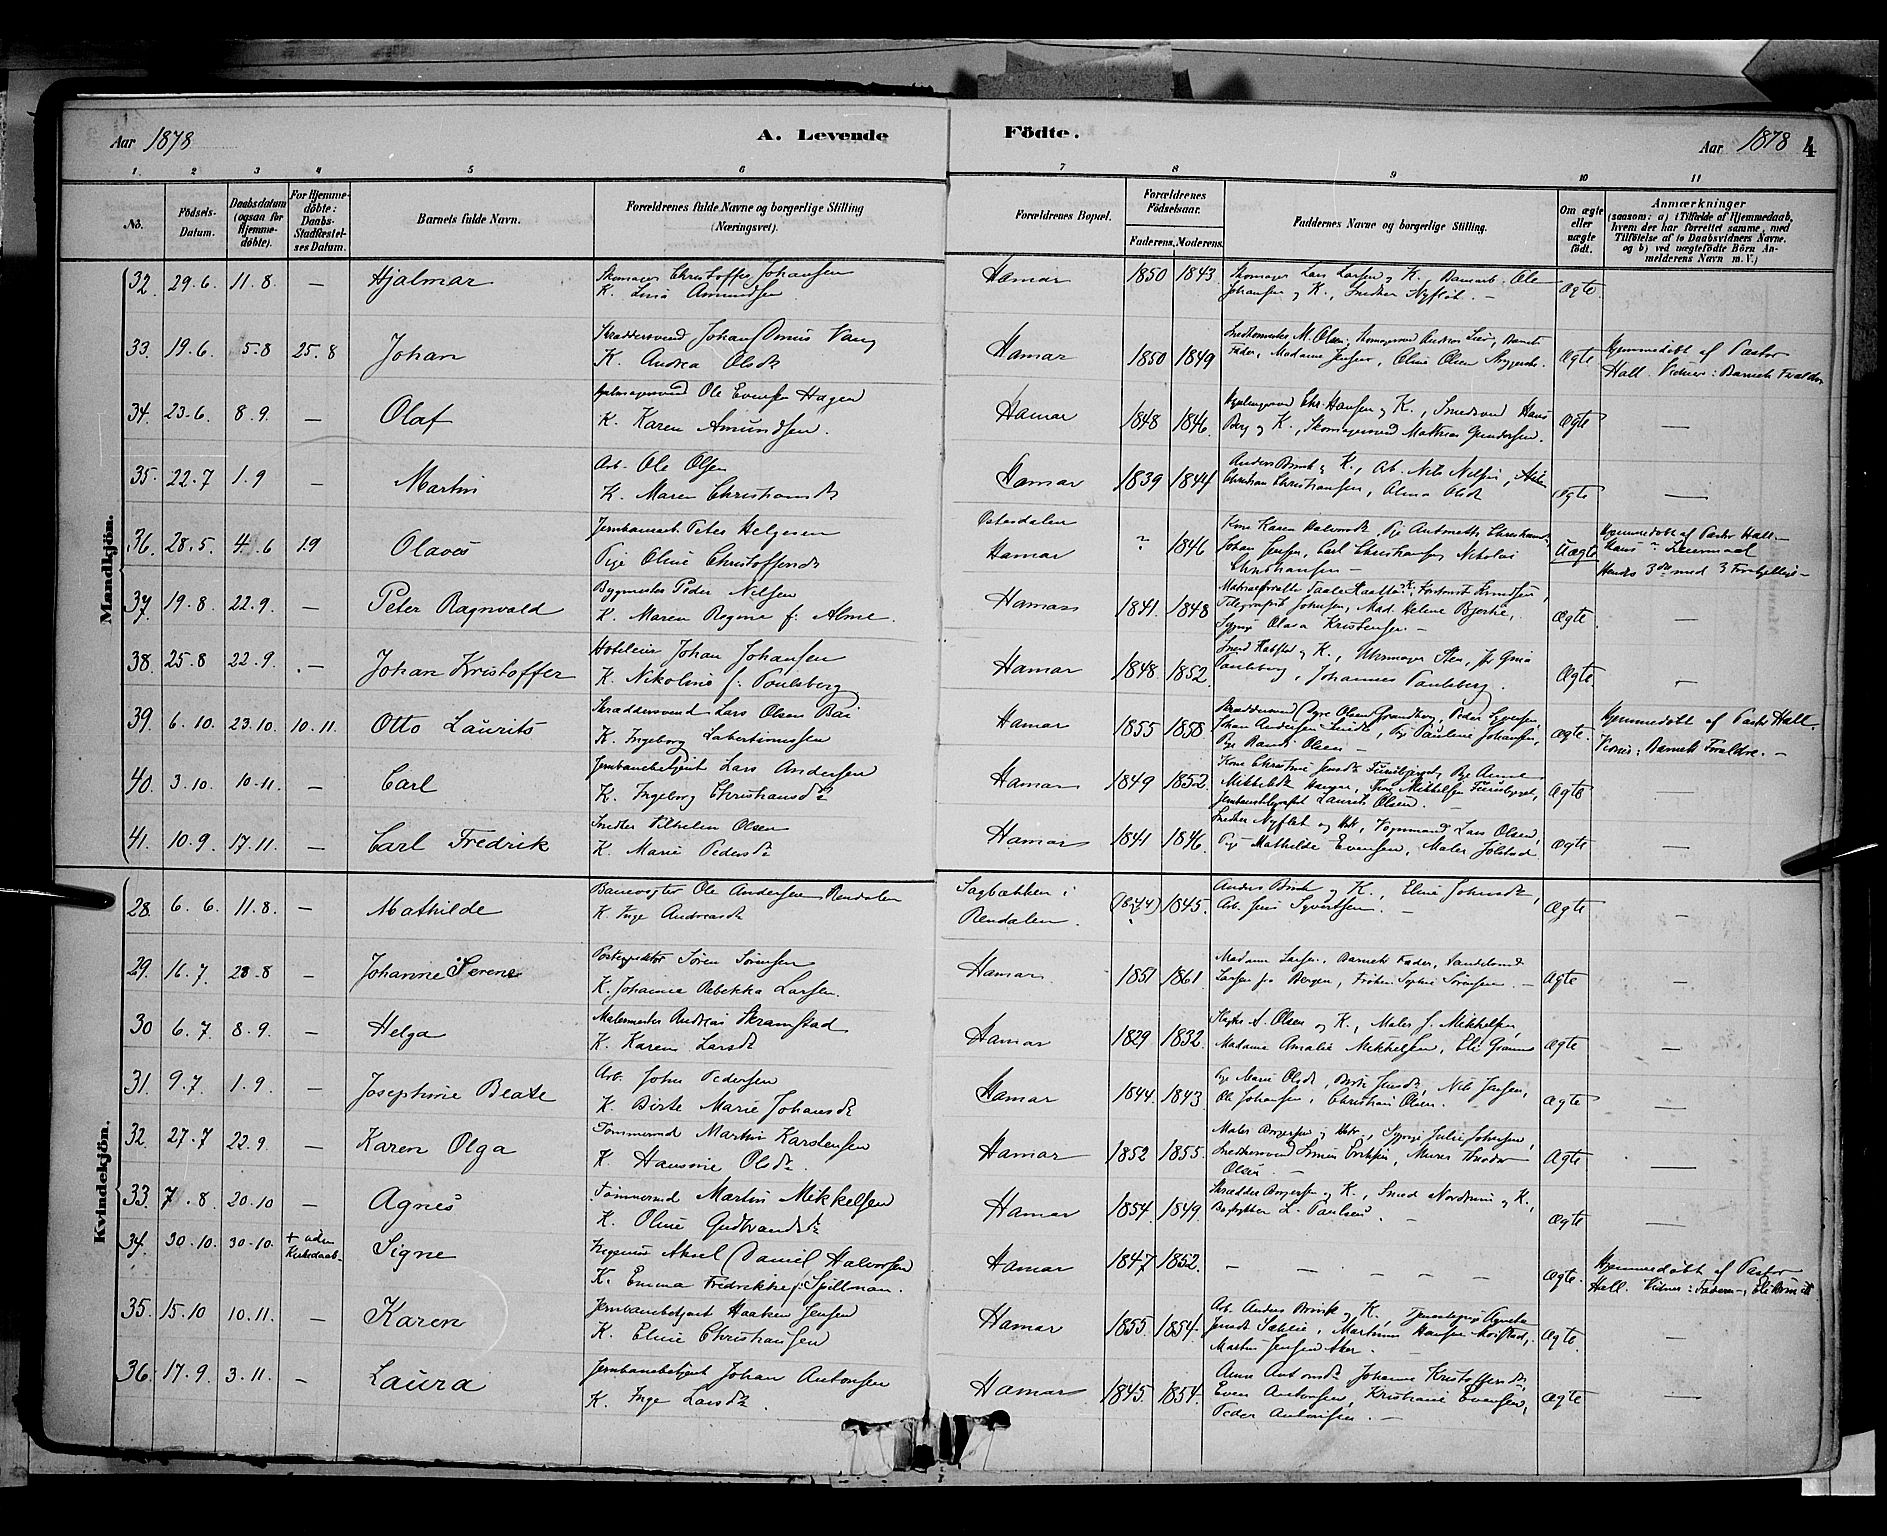 Aar 1878
A. Levende
Födte.
Aar 1878
4
1. 2 3 4 5 6 7 8 9 10 11
No.
Födsels-Datum.
Daabsdatum (ogsaa for Hjemme-döbte).
For Hjemme-döbte: Daabs-Stadfæstel-ses Datum.
Barnets fulde Navn.
Forældrenes fulde Navne og borgerlige Stilling (Næringsvei).
Forældrenes Bopæl.
Forældrenes Födselsaar.
Faderens. Moderens.
Faddernes Navne og borgerlige Stilling.
Om ægte eller uægte födt.
Anmærkninger
(saasom: a) i Tilfælde af Hjemmedaab, hvem der har forrettet samme, med Tilföielse af to Daabsvidners Navne. og b) ved uægtefödte Börn An-melderens Navn m. V.)
Mandkjön.
32. 29.6. 11.8. — Hjalmar
Skomager Christoffer Johansen
K. Lina Amundsen
Hamar 1850 1843
Skomager Lars Larsen og K., Ole
Johansen og K., Snedker Nyflöt. —
Ægte.
33. 19.6. 5.8 25.8 Johan
Skræddersvend Johan Vang
K. Andrea Olsdt
Hamar 1850 1849
M. Olsen,
Fader, Madame Jensen, Oline Olsen
Ægte
Hjemmedöbt af Pastor
Hall. Vidner: Barnets Forældre
34. 23.6. 8.9. — Olaf
Ole Evensen Hagen
K. Karen Amundsen.
Hamar 1848 1846.
Chr. Hansen og K., Smedsvend Hans
Berg og K., Skomagersvend Mathias Gundersen.
Ægte —
35. 22.7 1.9 — Martin
Arb. Ole Olsen
K. Maren Christiansdt
Hamar 1839 1844
Anders Brink og K., Arb. Nils Nilsen,
Christian Christiansen, Alma Olsdt
Ægte —
36. 28.5. 4.6 1.9 Olaves
Jernbanearb. Peter Helgesen
Pige Oline Christoffersdt
Österdalen
Hamar ? 1846
Kone Karen Halvorsdt, Pige
Johan Jensen, Carl Christiansen, Nikolai
Christiansen —
Uægte
Hjemmedöbt af Pastor Hall. —
Hans ? Leiermaal
Hendes 3de med 3 Forskjellige —
37. 19.8. 22.9. — Peter Ragnvald
Bygmester Peder Nilsen
K. Maren Regine f. Alme.
Hamar 1841. 1848
Knudsen,
Telegrafist Johnsen, Mad. Helene Bjerke,
Sypige Olava Kristensen —
Ægte. —
38. 25.8 22.9. — Johan Kristoffer
Hoteleier Johan Johansen
K. Nikoline f. Poulsberg
Hamar 1848. 1852.
og K., Uhrmager Sten,
Paulsberg, Johannes Paulsberg.
Ægte. —
39. 6.10. 23.10. 10.11. Otto Laurits
Skræddersvend Lars Olsen
K. Ingeborg
Hamar 1855 1858
Skræddersvend Olsen Peder Evensen,
Johan Andersen Pige Pauline Johansen,
Pige Randi Olsen —
Ægte.
Hjemmedöbt af Pastor Hall.
Vidner: Barnets Forældre. —
40. 3.10. 10.11. — Carl
Jernbanebetjent Lars Andersen
K. Ingeborg Christiansdt
Hamar 1849 1852.
Kone Christine Jensdt Pige Anne
Mikkelsdt
Laurits Olsen. —
Ægte —
41. 10.9. 17.11. — Carl Fredrik
Snedker Vilhelm Olsen
K. Marie Pedersdt
Hamar 1841 1846.
Snedker Nyflöt og K., Vognmand Lars Olsen,
Pige Mathilde Evensen, Maler Jölstad
Ægte —
Kvindekjön.
28. 6.6. 11.8. — Mathilde
Banevogter Ole Andersen Rendalen
K. Inge Andreasdt
Sagbakken i
Rendalen (1844) 1845.
Anders Brink og K., Eline Johnsdt,
Arb. Jens Syvertsen. —
Ægte —
29. 16.7. 28.8 — Johanne Serene
Postexpeditör Sören Sörensen
K. Johanne Rebekka Larsen.
Hamar 1851 1861.
Madame Larsen, Barnets Fader,
Larsen fra Bergen, Fröken Sophie Sörensen. —
Ægte —
30 6.7 8.9. — Helga
Malermester Andreas Skramstad
K. Karen Larsdt
Hamar 1829 1832.
A. Olsen og K., Maler J. Mikkelsen,
Madame Amalie Mikkelsen,
Ægte —
31. 9.7. 1.9. — Josephine Beate
Arb. John Pedersen
K. Birte Marie Johansdt
Hamar 1844. 1843
Pige Marie Olsdt, Berte Jensdt, Nils Jensen,
Ole Johansen, Christian Olsen.
Ægte —
32. 27.7 22.9. — Karen Olga
Tömmermd Martin Karstensen
K. Hansine Olsdt.
Hamar 1852 1855.
Maler Sypige Julie Johnsen,
Snedkersvend
Olsen. —
Ægte —
33. 7.8 20.10 — Agnes
Tömmermd Martin Mikkelsen
K. Oline Gudbrandsdt
Hamar 1854 1849.
Skrædder og K., Smed og K.,
Bogtrykker L. Paulsen. —
Ægte —
34. 30.10. 30.10. + uden Kirkedaab. Signe
Aksel Daniel Halvorsen
K. Emma Fredrikke f. Spillman.
Hamar 1847 1852.
— — — — — —
Ægte.
Hjemmedöbt af Pastor
Hall. Vidner: Faderen,
35. 15.10 10.11. — Karen
Jernbanebetjent Haaken Jensen
K. Eline Christiansen
Hamar 1855. 1854.
Arb. Anders Brink og K,
Martinus Hansen
Martin Jensen Aker. —
Ægte. —
36. 17.9. 3.11. — Laura
Jernbanebetjent Johan Antonsen
K. Inge Larsdt.
Hamar 1845. 1854.
Anne Antonsdt Johanne Kristoffersdt,
Even Antonsen, Kristiane Evensen,
Peder Antonsen. —
Ægte —